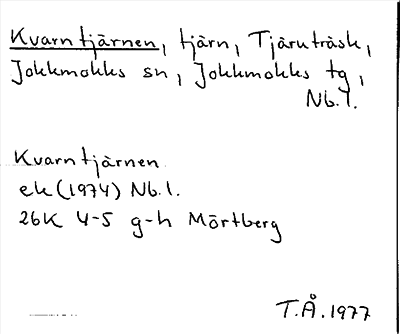 Kvarntjärnen, tjärn, Tjåruträsk,
Jokkmokks sn, Jokkmokks tg,
Nb.l.
Kvarntjärnen
ek (1974) Nb.l.
26K 4-5 g-h Mörtberg
T.Å. 1977